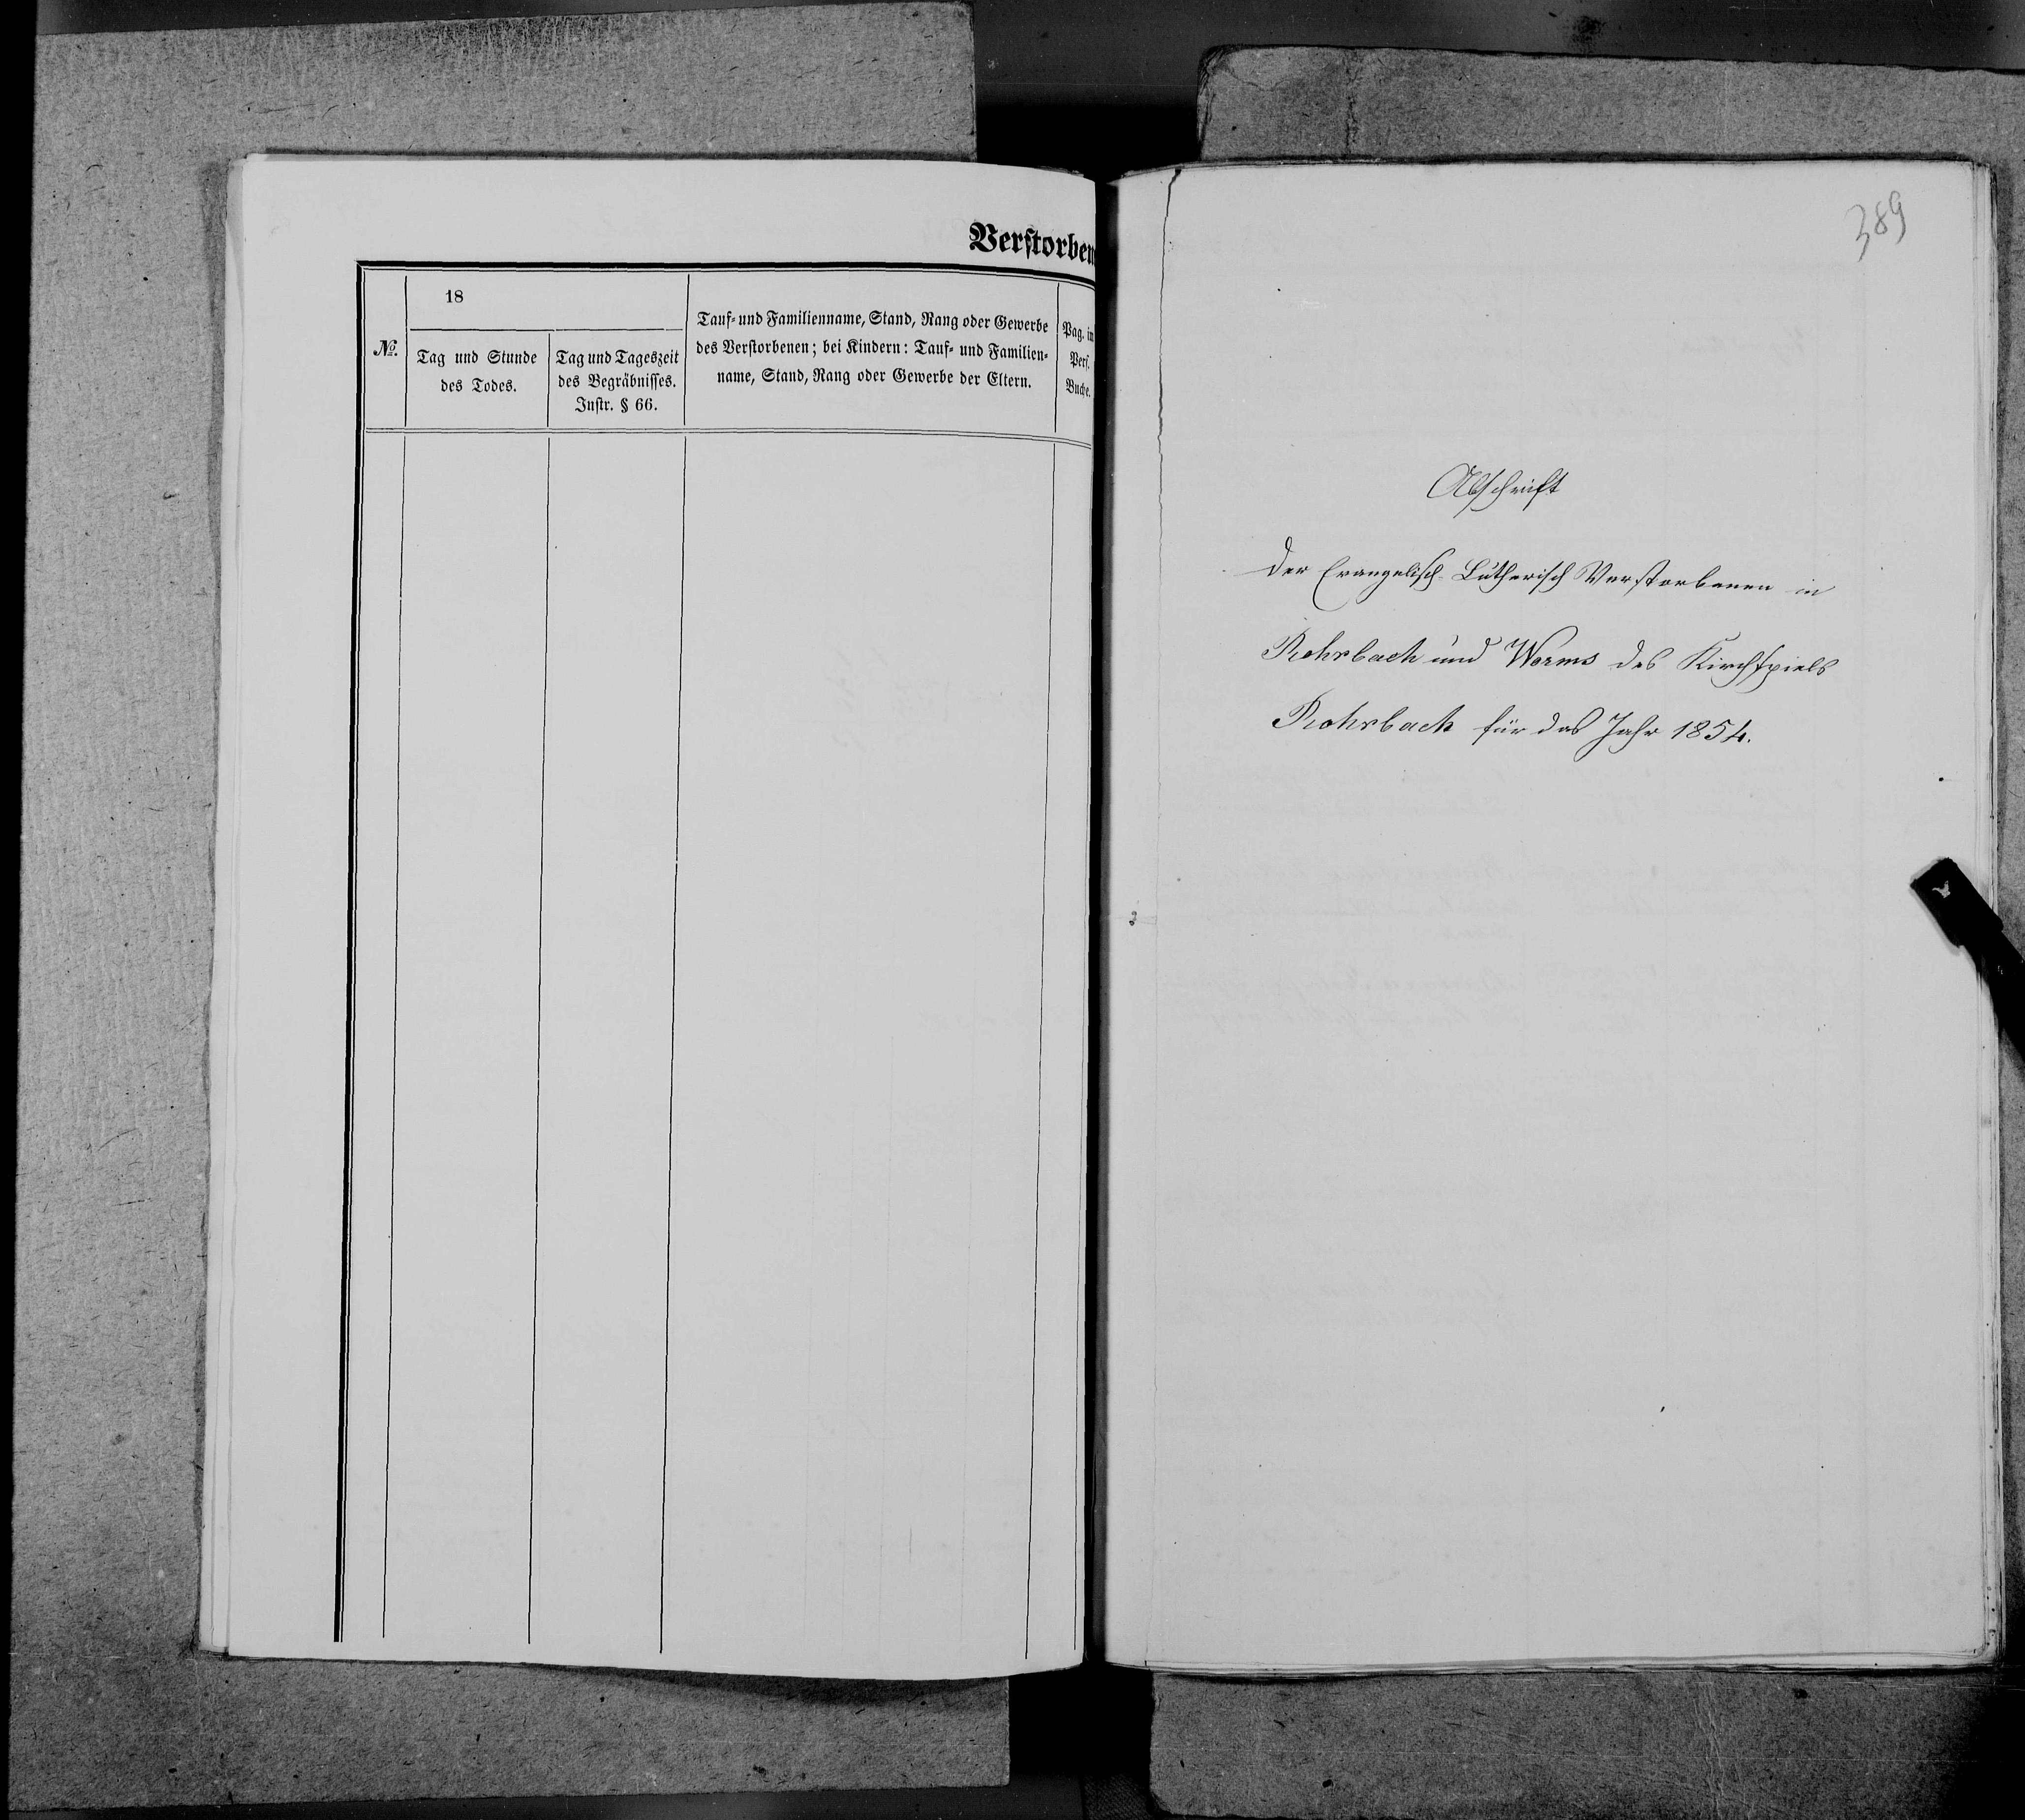 Verstorben
No.
18
Tag und Stunde
des Todes.
Tag und Tageszeit
des Begräbnisses.
Instr. § 66.
Tauf- und Familienname, Stand, Rang oder Gewerbe
des Verstorbenen; bei Kindern: Tauf- und Familien-
name, Stand, Rang oder Gewerbe der Eltern.
Pag. im
Pers.
Buche.
389
Abschrift
der Evangelisch-Lutherisch Verstorbenen in
Rohrbach und Worms des Kirchspiels
Rohrbach für das Jahr 1854.